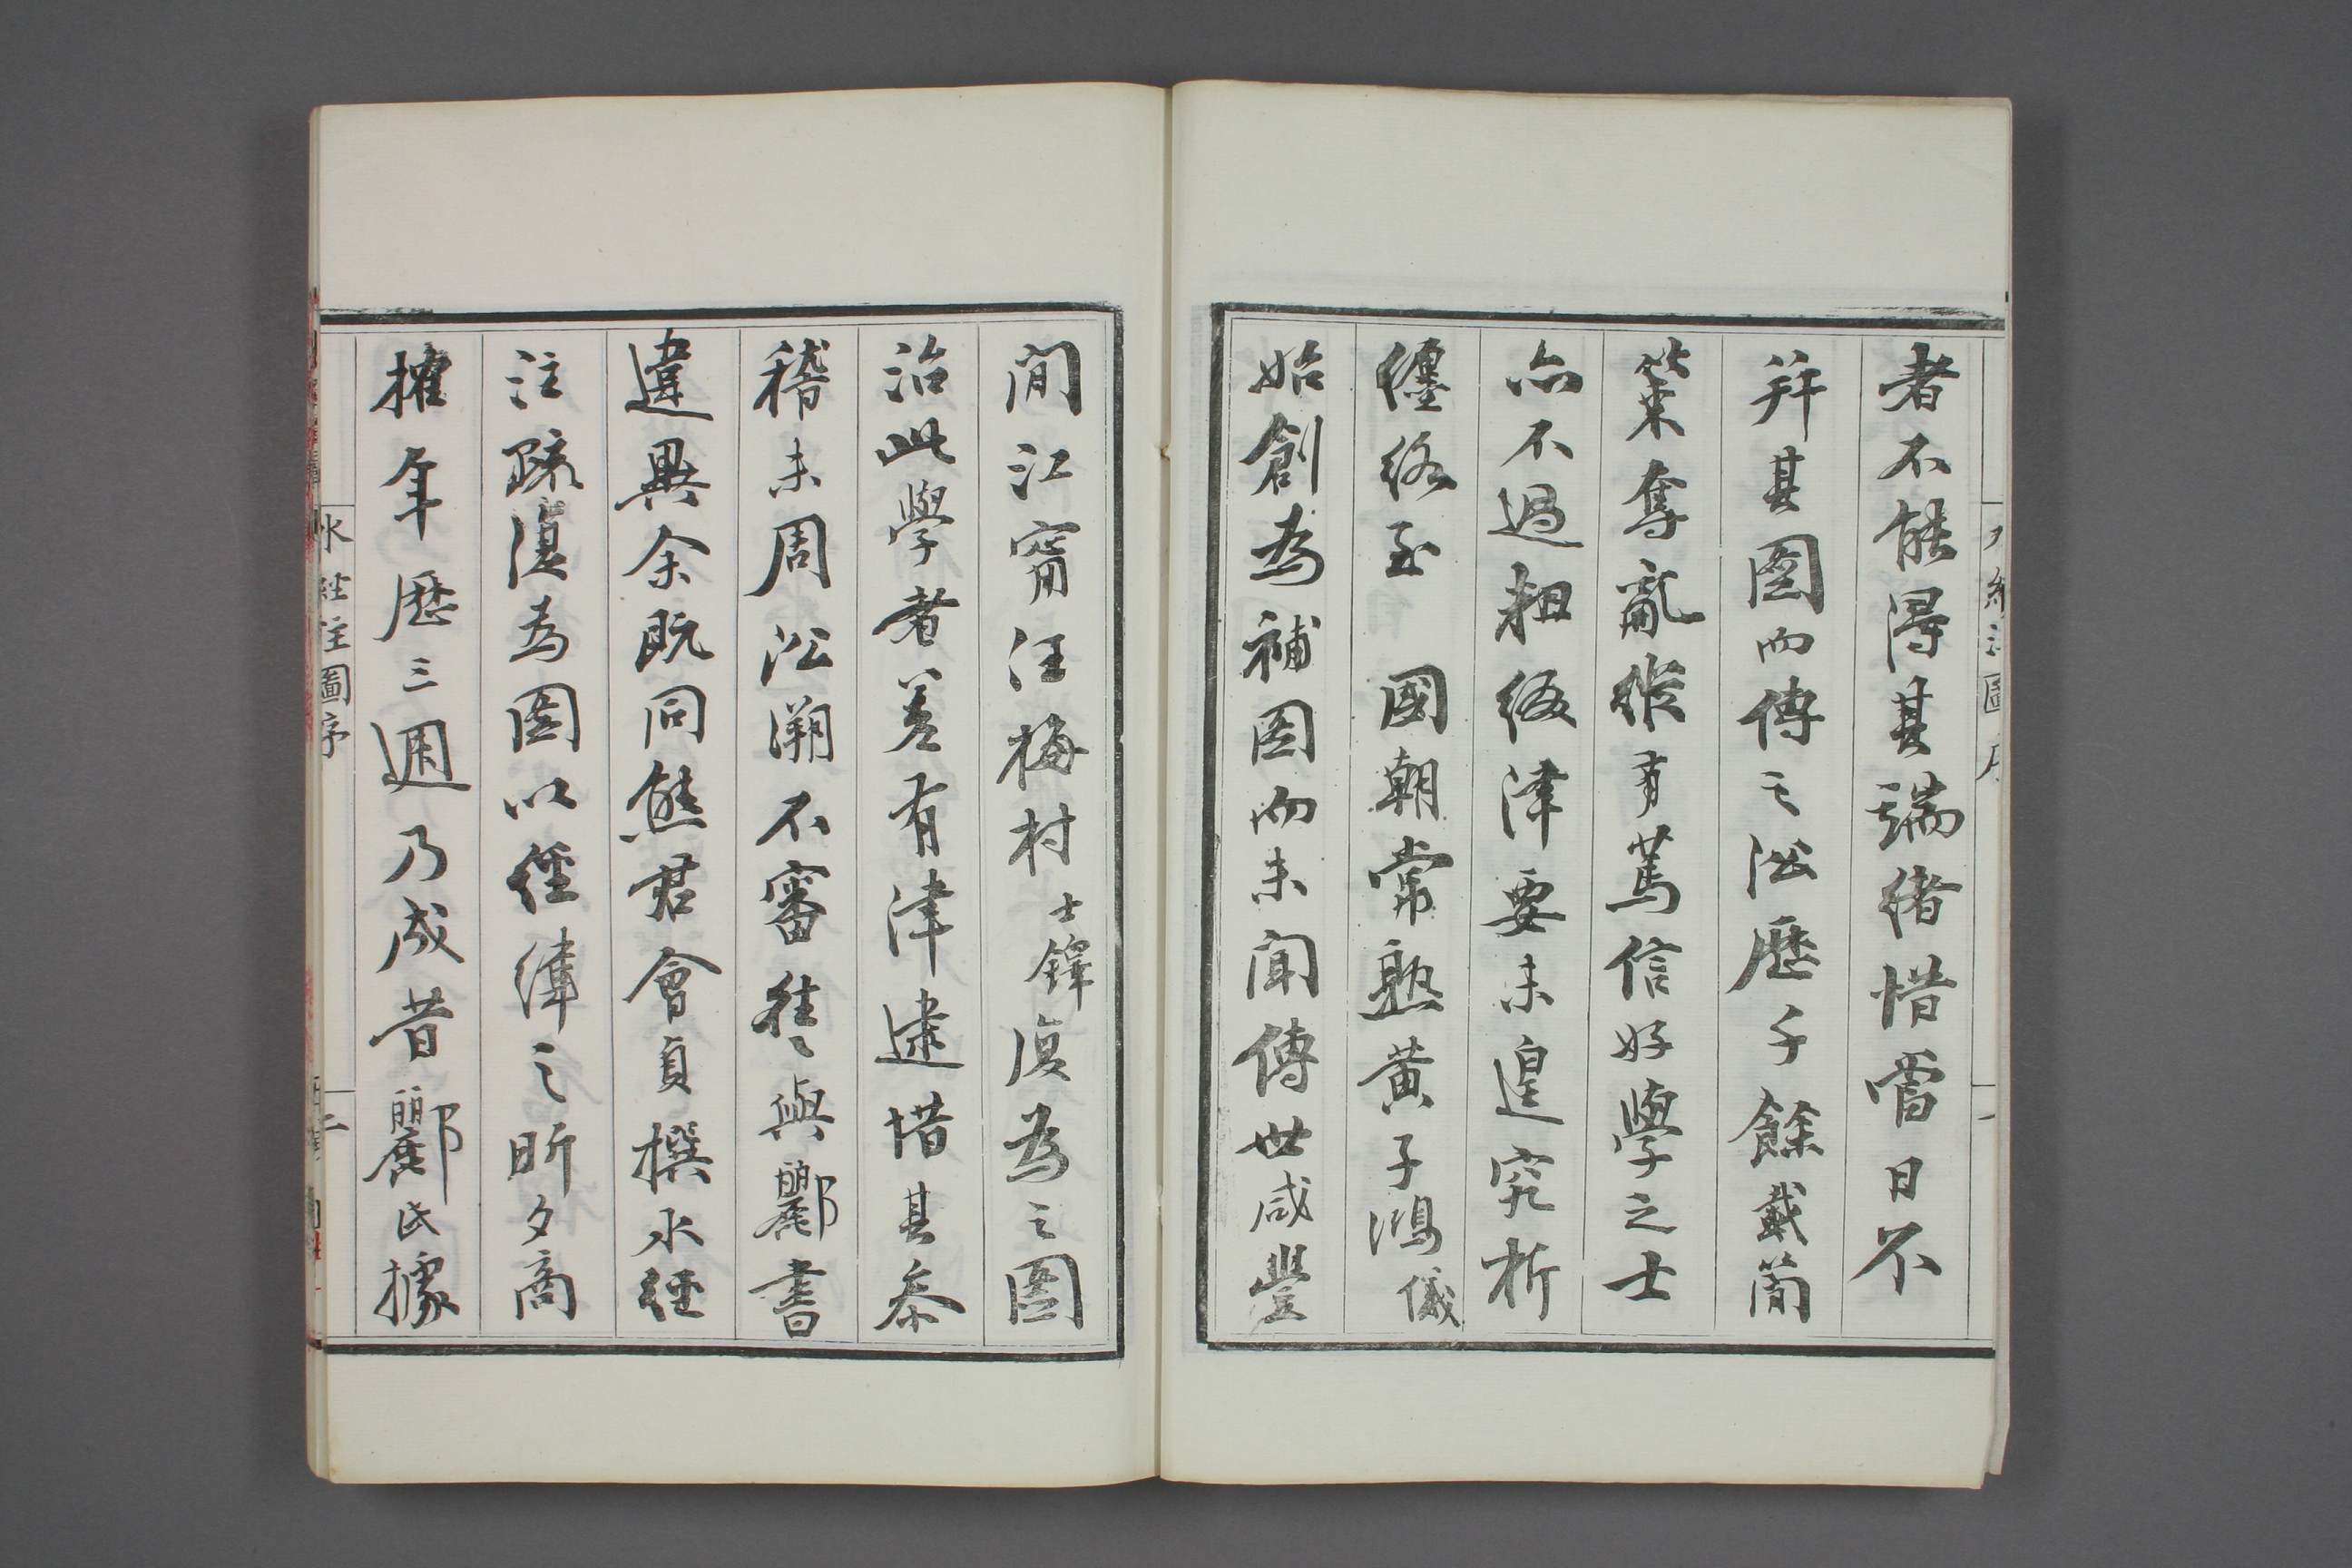 者不能得其端緒惜當日不
并其圖而傳之㳂歷千餘載簡
策奪亂猝有篤信好學之士
亦不過粗綴津要未遑究析
纏絡至　國朝常熟黃子鴻儀
始創為補圖而未聞傳世咸豐
間江甯汪梅村士鐸復為之圖
治此學者差有津逮惜其參
稽未周㳂溯不審往〻與酈書
違異余既同熊君會貞撰水經
注疏復為圖以經緯之昕夕商
搉年歷三週乃成昔酈氏據
水經注圖序
二